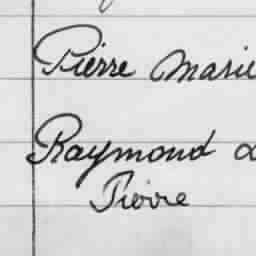 Pierre Marie
Raymond
Pierre